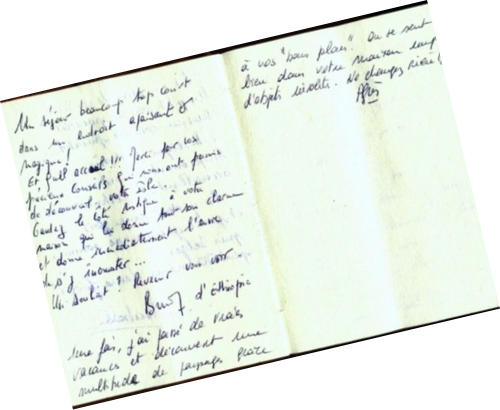 Un séjour beaucoup trop court
dans un endroit apaisant &
magique !
Et quel accueil !!! Merci pour vos
précieux conseils qui nous ont permis
de découvrir votre
Gardez le côté rustique à votre
maison qui lui donne tout son charme
et donne immédiatement l'envie
de s'y incruster...
Un souhait ? Revenir vous voir -
d'Éthiopie
une fois, j'ai passé de vraies
vacances et découvert une
multitude de paysages grâce
à vos "bons plans". On se sent
bien dans votre maison
d'objets insolites. Ne changez rien !